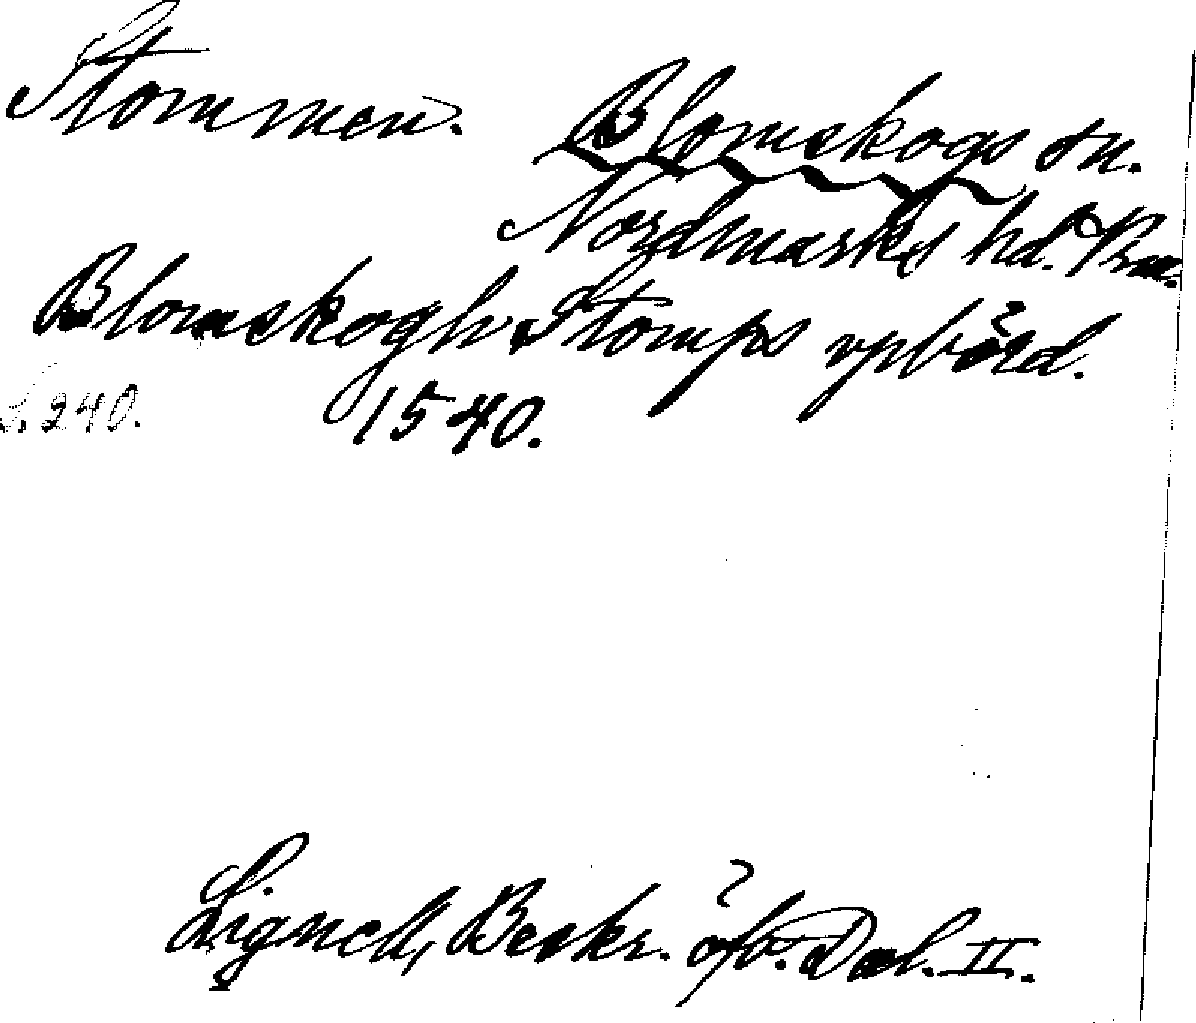 Stommen.
Blomskogs sn.
Nordmarks hd.
Blomskogh Stomps vpbörd.
S. 240. 1540.
Lignell, Beskr. öfv. Dal. II.